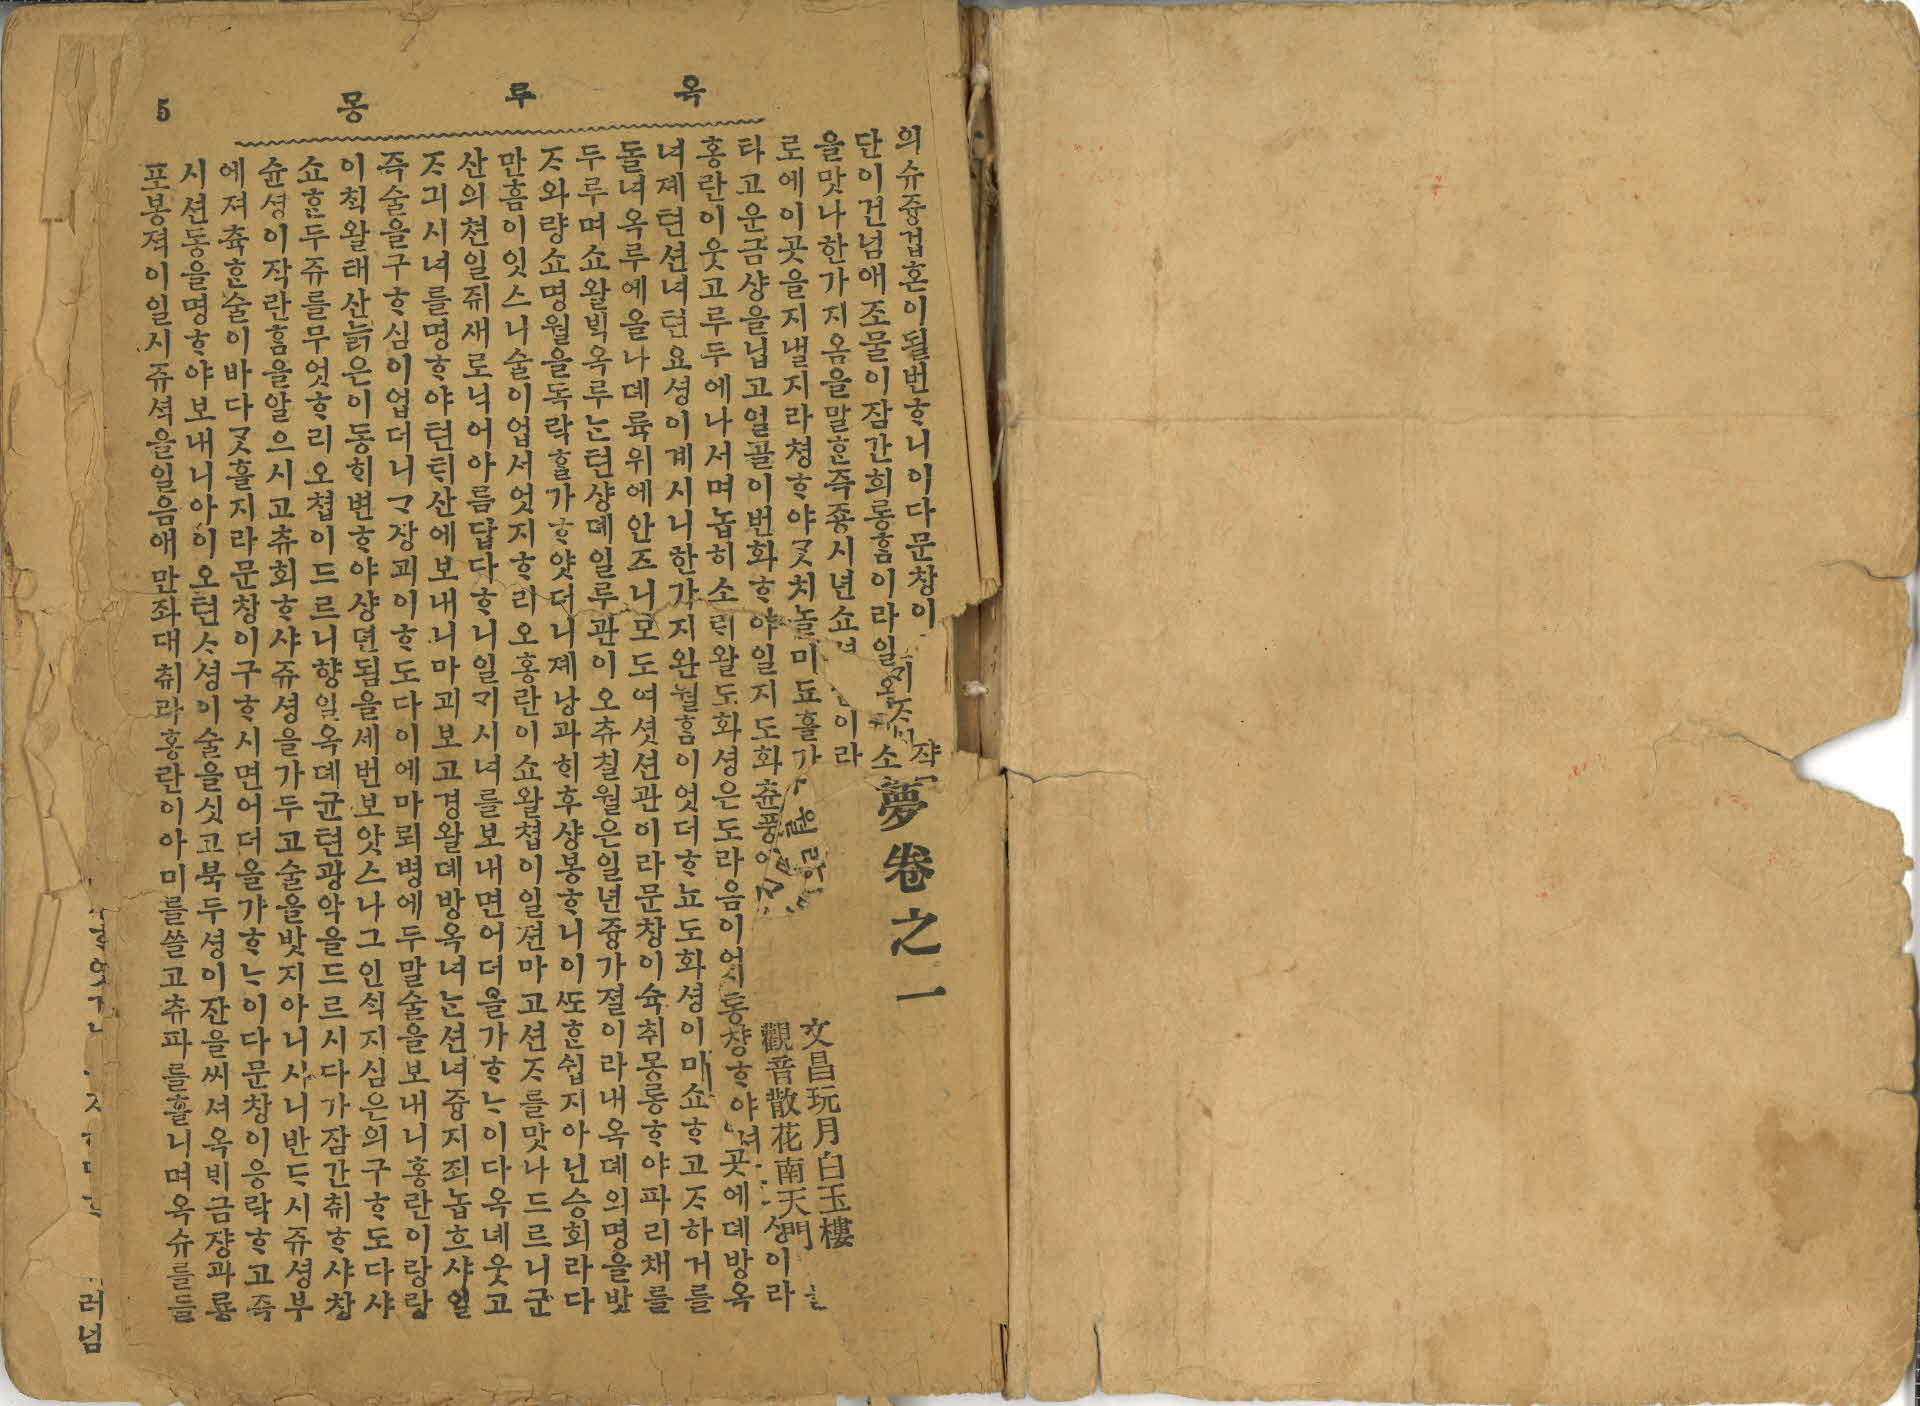 옥루몽
5
의슈즁겁혼이될번ᄒᆞ니이다문창이
단이건넘애조물이잠간희롱홈이라일
을맛나한가지옴을말ᄒᆞᆫ즉죵시년쇼
로에이곳을지낼지라쳥ᄒᆞ야ᄀᆞᆺ치놀미됴흘가
타고운금샹을닙고얼골이번화ᄒᆞ야일지도화츈풍에
홍란이웃고루두에나서며놉히소ᄅᆡ왈도화셩은도라옴이엇
녀졔텬션녀텬요셩이계시니한가지완월홈이엇더ᄒᆞ뇨도화셩이미쇼ᄒᆞ고ᄌᆞ하거를
돌녀옥루에올나뎨륙위에안즈니모도여셧션관이라문창이슉취몽롱ᄒᆞ야파리채를
두루며쇼왈ᄇᆡᆨ옥루ᄂᆞᆫ텬샹뎨일루관이오츄칠월은일년즁가졀이라내옥뎨의명을밧
ᄌᆞ와량쇼명월을독락ᄒᆞᆯ가ᄒᆞ얏더니졔낭과ᄒᆡ후샹봉ᄒᆞ니이ᄯᅩᄒᆞᆫ쉽지아닌승회라다
만흠이잇스니술이업서엇지ᄒᆞ리오홍란이쇼왈쳡이일젼마고션ᄌᆞ를맛나드르니군
산의쳔일쥬새로닉어아름답다ᄒᆞ니일ᄀᆡ시녀를보내면어더올가ᄒᆞᄂᆞ이다옥녀웃고
ᄌᆞ긔시녀를명ᄒᆞ야텬ᄐᆡ산에보내니마고보고경왈뎨방옥녀ᄂᆞᆫ션녀즁지죄놉흐샤일
즉술을구ᄒᆞ심이업더니ᄀᆞ장괴이ᄒᆞ도다이에마뢰병에두말술을보내니홍란이랑랑
이칙왈태산늙은이동ᄒᆡ변ᄒᆞ야샹뎐됨을세번보앗스나그인ᄉᆡᆨ지심은의구ᄒᆞ도다샤
쇼ᄒᆞᆫ두쥬를무엇ᄒᆞ리오쳡이드르니향일옥뎨균텬광악을드르시다가잠간취ᄒᆞ샤창
슌셩이작란홈을알으시고츄회ᄒᆞ샤쥬셩을가두고술을밧지아니시니반ᄃᆞ시쥬셩부
에져츅ᄒᆞᆫ술이바다ᄀᆞᆺ흘지라문창이구ᄒᆞ시면어더올가ᄒᆞᄂᆞ이다문창이응락ᄒᆞ고즉
시션동을명ᄒᆞ야보내니아이오텬ᄉᆞ셩이술을싯고북두셩이잔을씨셔옥빅금쟝과룡
포봉젹이일시쥬셕을일음애만좌대취라홍란이아미를쓸고츄파를흘니며옥슈를들
夢卷之一
文昌玩月白玉樓
觀音散花南天門